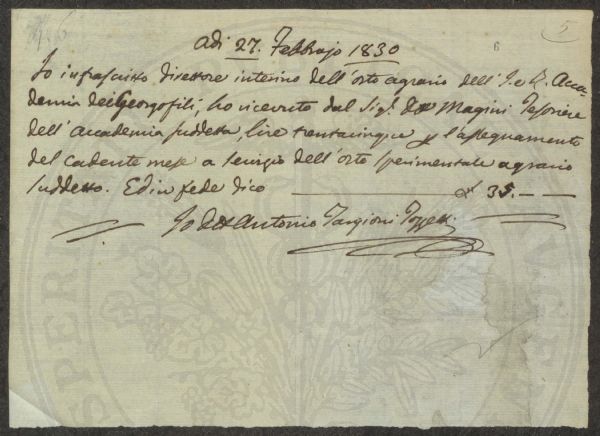 5
6
adi 27. Febbrajo 1830
Io infrascritto direttore interino dell'orto agrario dell'I. e R. Acca-
demia dei Georgofili, ho ricevuto dal Sigr. Dor Magini Tesoriere
dell'Accademia suddetta, lire trentacinque p l'assegnamento
del cadente mese a servigio dell'orto sperimentale agrario
suddetto. Ed in fede dico £ 35.——
Io Dor Antonio Targioni Tozzetti